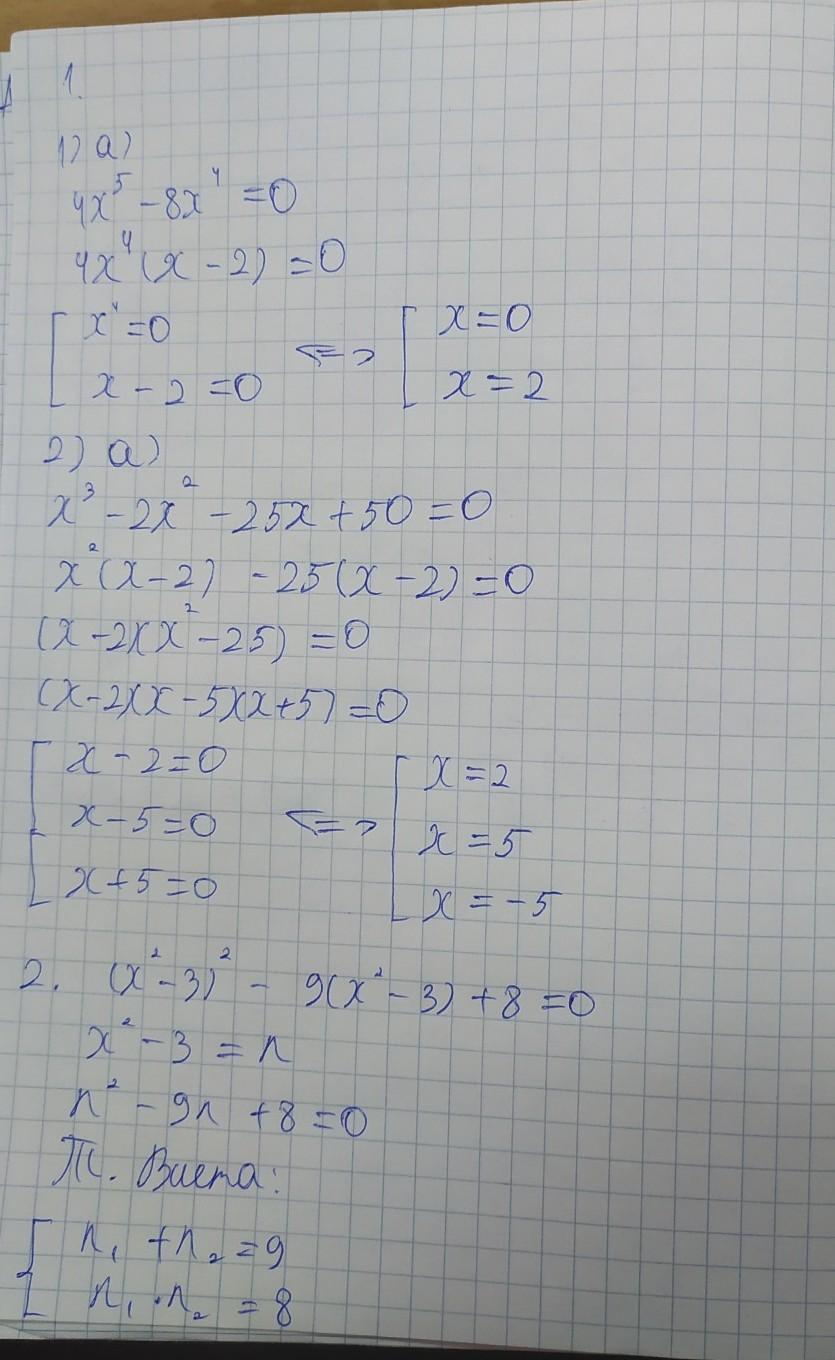 1.
1) а)
4x⁵ - 8x⁴ = 0
4x⁴(x - 2) = 0
[ x⁴ = 0 <=> [ x = 0
x - 2 = 0 x = 2
2) а)
x³ - 2x² - 25x + 50 = 0
x²(x - 2) - 25(x - 2) = 0
(x - 2)(x² - 25) = 0
(x - 2)(x - 5)(x + 5) = 0
[ x - 2 = 0 [ x = 2
x - 5 = 0 <=> x = 5
x + 5 = 0 x = -5
2. (x² - 3)² - 9(x² - 3) + 8 = 0
x² - 3 = n
n² - 9n + 8 = 0
Т. Виета:
{ n₁ + n₂ = 9
n₁ · n₂ = 8